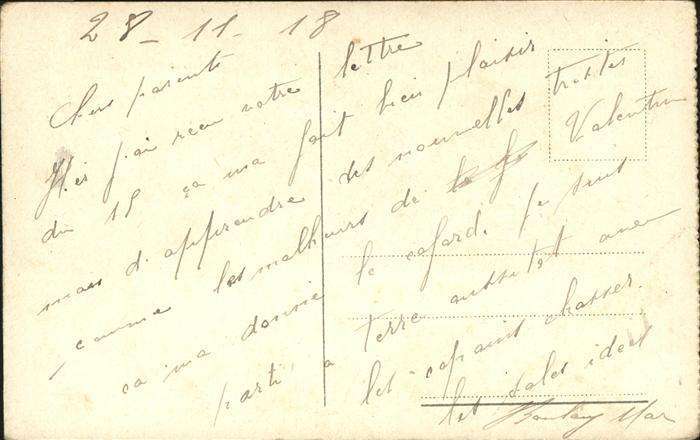 28-11-18
Chers parents
Hier j'ai reçu votre lettre
du 18 ça ma fait bien plaisir
mais d'apprendre des nouvelles tristes
comme les malheurs de Valentin
ça ma donné le cafard. Je suis
parti a terre aussitot avec
les copains chasser
les sales idées